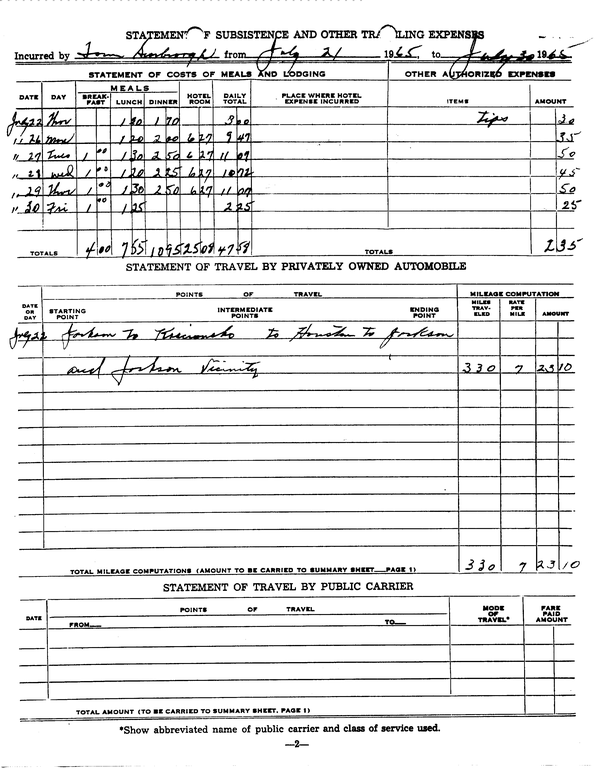 STATEMENT OF SUBSISTENCE AND OTHER TRAVELING EXPENSES
Incurred by Tom from July 21 1965, to July 30 1965
STATEMENT OF COSTS OF MEALS AND LODGING OTHER AUTHORIZED EXPENSES
DATE DAY MEALS BREAK-FAST LUNCH DINNER HOTEL ROOM DAILY TOTAL PLACE WHERE HOTEL EXPENSE INCURRED ITEMS AMOUNT
July 22 Thur 1 30 1 70 3 00 tips 30
" 26 mon 1 20 2 00 6 27 9 47 35
" 27 Tues 1 00 1 30 2 50 6 27 11 07 50
" 28 wed 1 00 1 20 2 25 6 27 10 72 45
" 29 Thur 1 00 1 30 2 50 6 27 11 07 50
" 30 Fri 1 00 1 25 2 25 25
TOTALS 4 00 7 55 10 95 25 08 47 58 TOTALS 2 35
STATEMENT OF TRAVEL BY PRIVATELY OWNED AUTOMOBILE
DATE OR DAY POINTS OF TRAVEL MILEAGE COMPUTATION
STARTING POINT INTERMEDIATE POINTS ENDING POINT MILES TRAV-ELED RATE PER MILE AMOUNT
July 22 Jackson to Kosciusko to Houston to Jackson
and Jackson Vicinity 330 7 23 10
TOTAL MILEAGE COMPUTATIONS (AMOUNT TO BE CARRIED TO SUMMARY SHEET PAGE 1) 330 7 23 10
STATEMENT OF TRAVEL BY PUBLIC CARRIER
DATE POINTS OF TRAVEL MODE OF TRAVEL* FARE PAID AMOUNT
FROM TO
TOTAL AMOUNT (TO BE CARRIED TO SUMMARY SHEET, PAGE 1)
*Show abbreviated name of public carrier and class of service used.
—2—